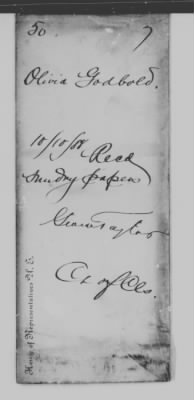 50.
7
Olivia Godbold.
10/10/08 Recd
sundry papers
Ct of Cls.
House of Representatives U. S.